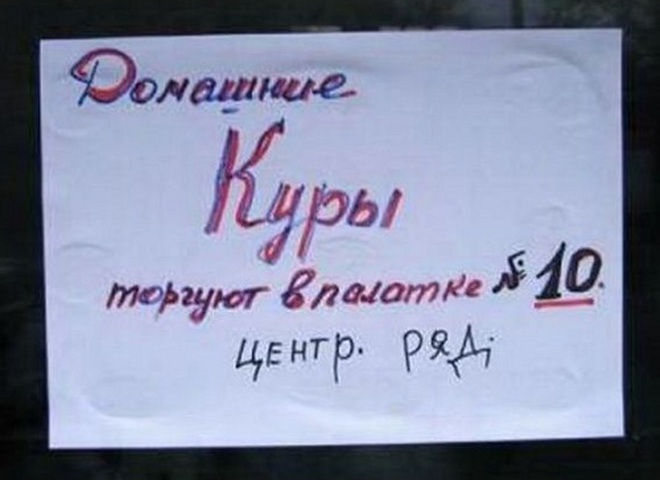 Домашние
Куры
торгуют в палатке № 10.
центр. ряд.